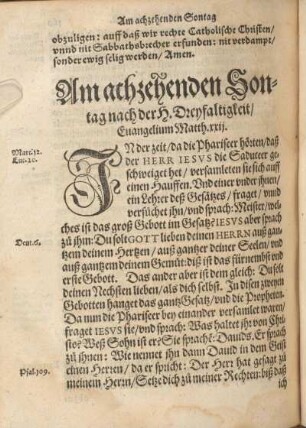 Am achzehenden Sontag
obzuligen: auff daß wir rechte Catholische Christen/
vnnd nit Sabbathsbrecher erfunden: nit verdampt/
sonder ewig selig werden/ Amen.
Am achzehenden Son-
tag nach der H. Dreyfaltigkeit/
Euangelium Matth. xxij.
Marc. 12.
Luc. 20.
IN der zeit/ da die Phariseer hörten/ daß
der HERR IESVS die Saduceer ge-
schweiget het/ versamleten sie sich auff
einen Hauffen. Vnd einer vnder ihnen/
ein Lehrer deß Gesätzes/ fraget/ vnnd
versüchet ihn/ vnd sprach: Meister/ wel-
ches ist das groß Gebott im Gesetz? IESVS aber sprach
Deut. 6.
zů jm: Du solt GOTT lieben deinen HERRN auß gan-
tzem deinem Hertzen/ auß gantzer deiner Seelen/ vnd
auß gantzem deinem Gemüt: diß ist das fürnembst vnd
erste Gebott. Das ander aber ist dem gleich: Du solt
deinen Nechsten lieben/ als dich selbst. In disen zweyen
Gebotten hanget das gantz Gesatz/ vnd die Propheten.
Da nun die Phariseer bey einander versamlet warn/
fraget IESVS sie/ vnd sprach: Was haltet jhr von Chri-
sto? Weß Sohn ist er? Sie sprachẽ: Dauids. Er sprach
zů ihnen: Wie nennet jhn dann Dauid in dem Geist
Psal. 109.
einen Herren/ da er spricht: Der Herr hat gesagt zů
meinem Herrn/ Setze dich zů meiner Rechten: biß daß
ich